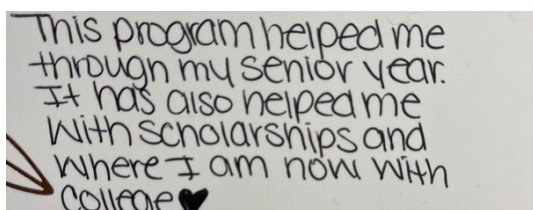 This program helped me
through my senior year.
It has also helped me
with scholarships and
where I am now with
college♥